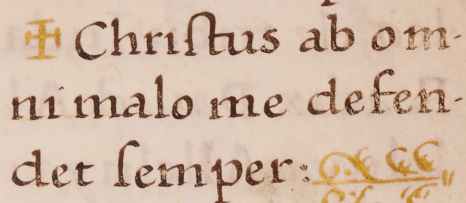 ✠ Chriſtus ab om-
ni malo me defen-
det ſemper: